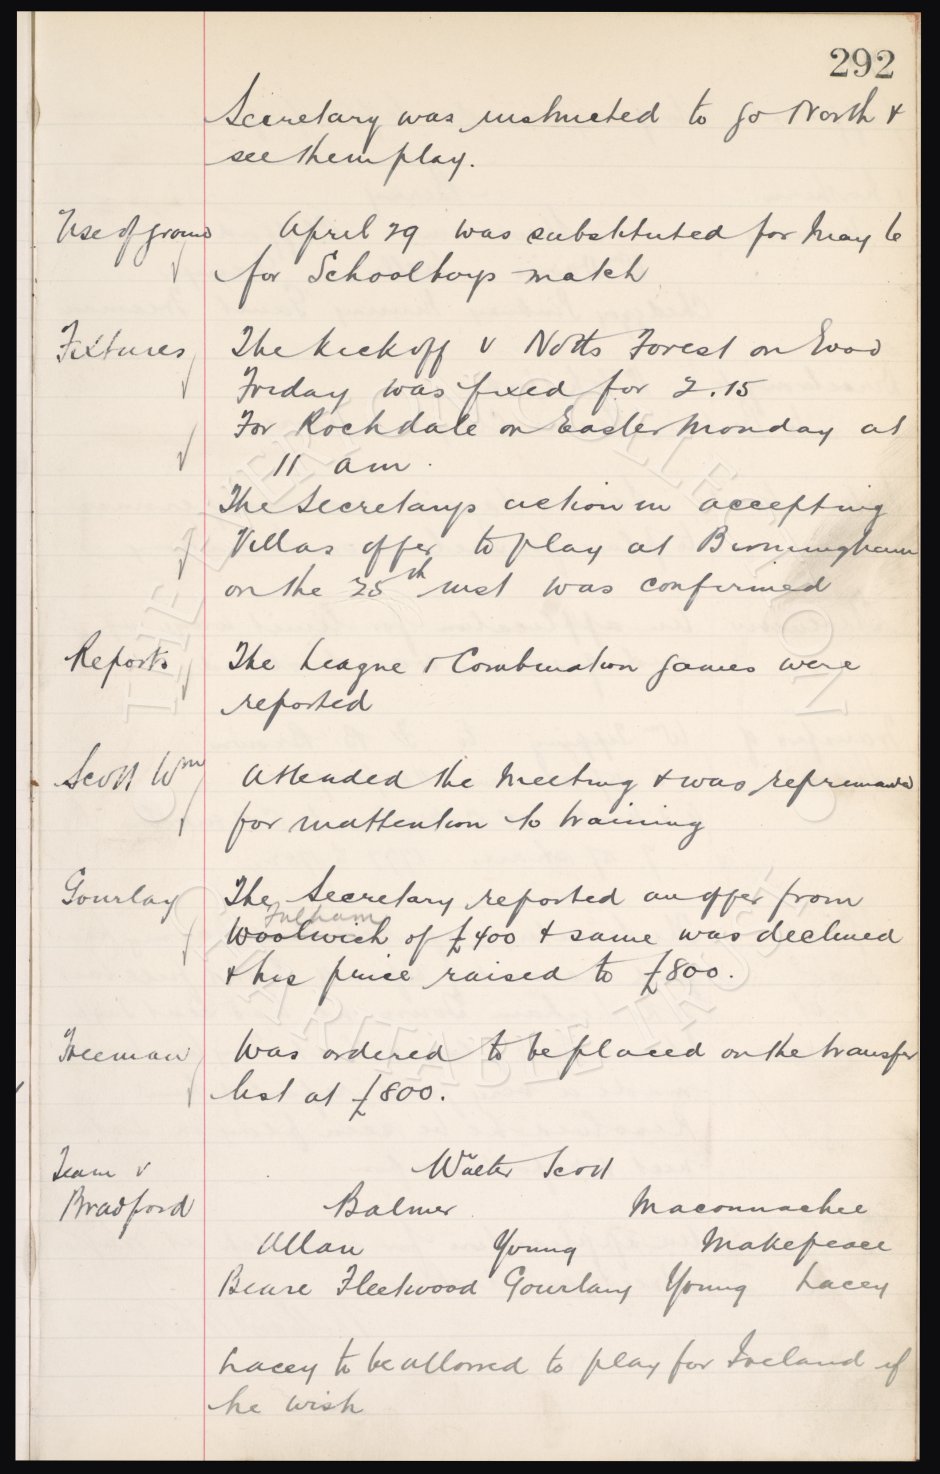 292
Secretary was instructed to go North &
see them play.
Use of ground April 29 was substituted for May 6
for Schoolboys match
Fixtures The kick off v Notts Forest on Good
Friday was fixed for 2.15
For Rochdale on Easter Monday at
11 am.
The Secretarys action in accepting
Villas offer to play at Birmingham
on the 25th inst was confirmed
Reports The League & Combination games were
reported
Scott Wm Attended the Meeting & was reprimanded
for inattention to training
Gourlay The Secretary reported an offer from
Fulham
Woolwich of £400 & same was declined
& his price raised to £800.
Freeman Was ordered to be placed on the transfer
list at £800.
Team v Walter Scott
Bradford Balmer Maconnachie
Allan Young Makepeace
Beare Fleetwood Gourlay Young Lacey
Lacey to be allowed to play for Ireland if
he wish